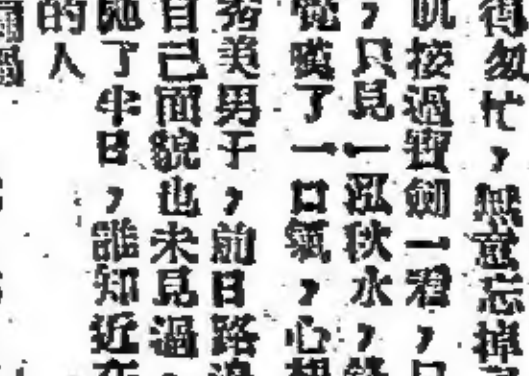 得匆忙，無意忘掉了
肌接過寶劍一看，只
，只見一泓秋水，
覺嘆了一口氣，心想
秀美男子，前日路邊
自己面貌也未見過。
了半日，誰知近在
的人